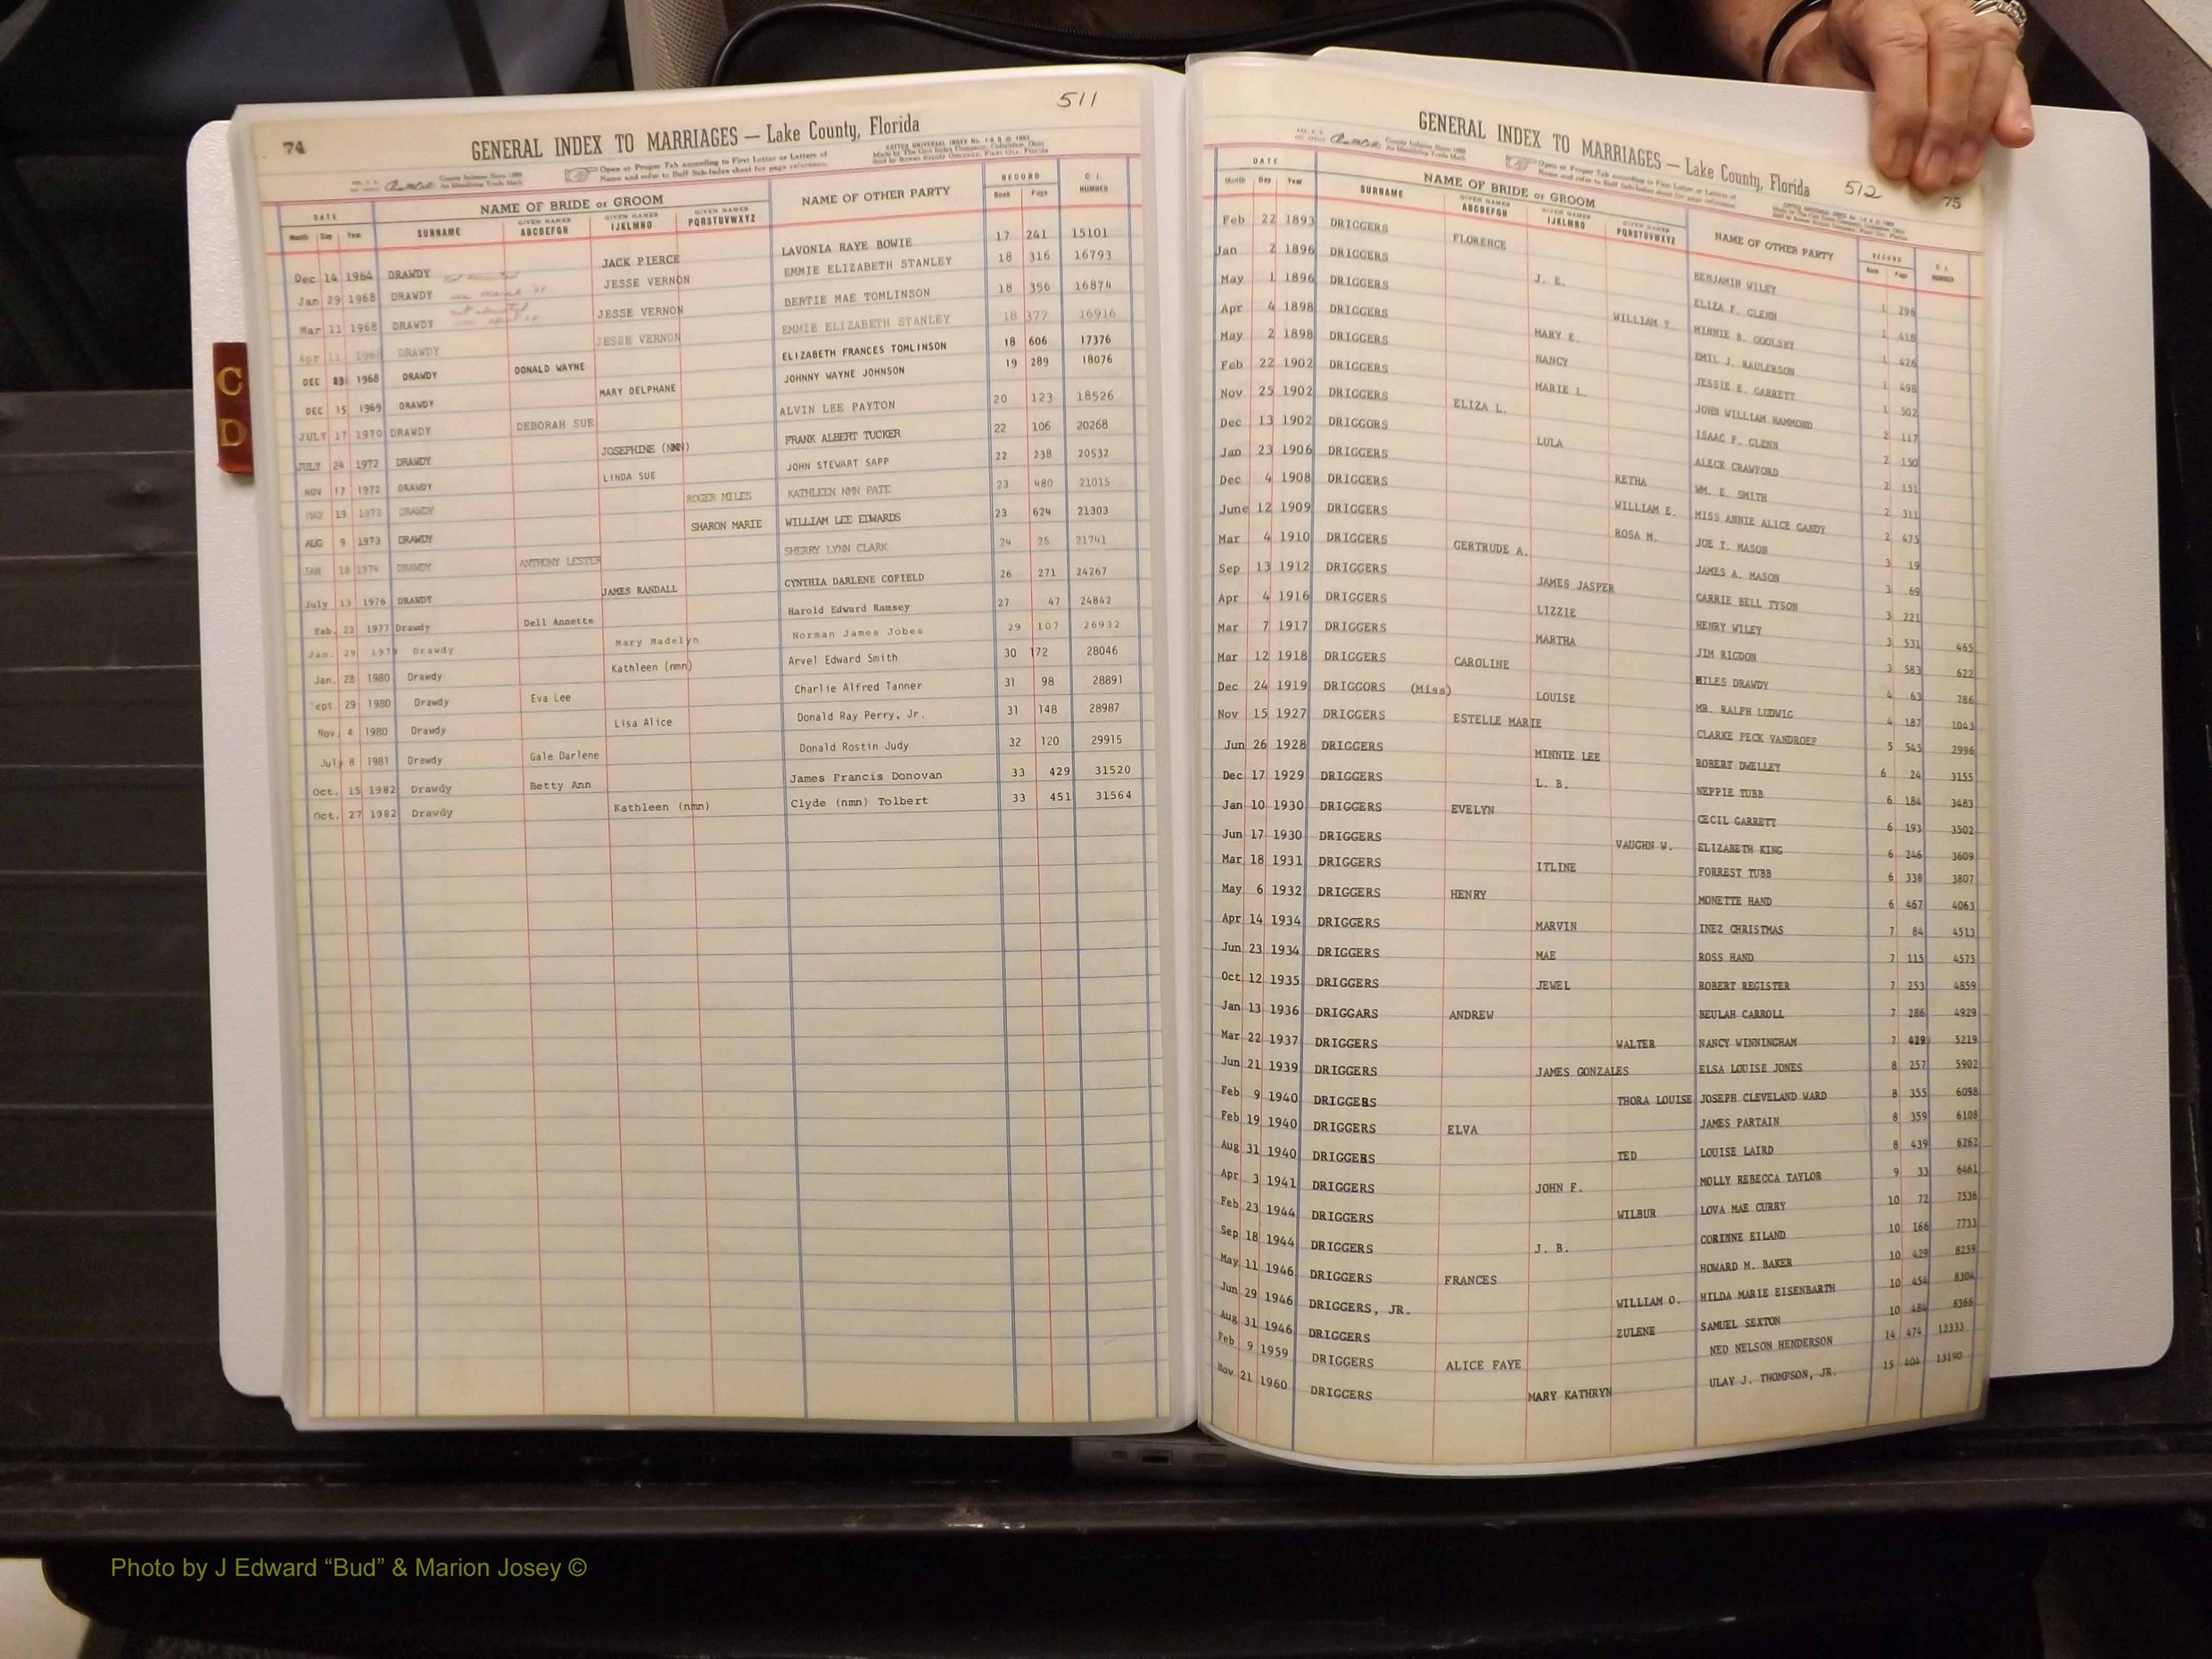 511
74
GENERAL INDEX TO MARRIAGES — Lake County, Florida
Open at Proper Tab according to First Letter or Letters of
Name and refer to Buff Sub-Index sheet for page reference.
DATE NAME OF BRIDE or GROOM NAME OF OTHER PARTY RECORD C. I. NUMBER
Month Day Year SURNAME GIVEN NAMES ABCDEFGH GIVEN NAMES IJKLMNO GIVEN NAMES PQRSTUVWXYZ Book Page
Dec 14 1964 DRAWDY JACK PIERCE LAVONIA RAYE BOWIE 17 241 15101
Jan 29 1968 DRAWDY JESSE VERNON EMMIE ELIZABETH STANLEY 18 316 16793
Mar 11 1968 DRAWDY JESSE VERNON BERTIE MAE TOMLINSON 18 356 16874
Apr 11 1968 DRAWDY JESSE VERNON EMMIE ELIZABETH STANLEY 18 377 16916
DEC 1968 DRAWDY DONALD WAYNE ELIZABETH FRANCES TOMLINSON 18 606 17376
DEC 15 1969 DRAWDY MARY DELPHANE JOHNNY WAYNE JOHNSON 19 289 18076
JULY 17 1970 DRAWDY DEBORAH SUE ALVIN LEE PAYTON 20 123 18526
JULY 24 1972 DRAWDY JOSEPHINE (NMN) FRANK ALBERT TUCKER 22 106 20268
NOV 17 1972 DRAWDY LINDA SUE JOHN STEWART SAPP 22 238 20532
MAY 19 1973 DRAWDY ROGER MILES KATHLEEN NMN PATE 23 480 21015
AUG 9 1973 DRAWDY SHARON MARIE WILLIAM LEE EDWARDS 23 624 21303
JAN 18 1974 DRAWDY ANTHONY LESTER SHERRY LYNN CLARK 24 25 21741
July 13 1976 DRAWDY JAMES RANDALL CYNTHIA DARLENE COFIELD 26 271 24267
Feb. 23 1977 Drawdy Dell Annette Harold Edward Ramsey 27 47 24842
Jan. 29 1979 Drawdy Mary Madelyn Norman James Jobes 29 107 26932
Jan. 28 1980 Drawdy Kathleen (nmn) Arvel Edward Smith 30 172 28046
Sept. 29 1980 Drawdy Eva Lee Charlie Alfred Tanner 31 98 28891
Nov. 4 1980 Drawdy Lisa Alice Donald Ray Perry, Jr. 31 148 28987
July 8 1981 Drawdy Gale Darlene Donald Rostin Judy 32 120 29915
Oct. 15 1982 Drawdy Betty Ann James Francis Donovan 33 429 31520
Oct. 27 1982 Drawdy Kathleen (nmn) Clyde (nmn) Tolbert 33 451 31564
C
D
GENERAL INDEX TO MARRIAGES — Lake County, Florida
512
75
DATE NAME OF BRIDE or GROOM NAME OF OTHER PARTY RECORD C. I. NUMBER
Month Day Year SURNAME GIVEN NAMES ABCDEFGH GIVEN NAMES IJKLMNO GIVEN NAMES PQRSTUVWXYZ Book Page
Feb 22 1893 DRIGGERS FLORENCE BENJAMIN WILEY 1 296
Jan 2 1896 DRIGGERS J. E. ELIZA F. GLENN 1 418
May 1 1896 DRIGGERS WILLIAM T. MINNIE B. GOOLSBY 1 426
Apr 4 1898 DRIGGERS MARY E. EMIL J. RAULERSON 1 498
May 2 1898 DRIGGERS NANCY JESSIE E. GARRETT 1 502
Feb 22 1902 DRIGGERS MARIE L. JOHN WILLIAM HAMMOND 2 117
Nov 25 1902 DRIGGERS ELIZA L. ISAAC F. GLENN 2 150
Dec 13 1902 DRIGGORS LULA ALECK CRAWFORD 2 151
Jan 23 1906 DRIGGERS RETHA WM. E. SMITH 2 311
Dec 4 1908 DRIGGERS WILLIAM E. MISS ANNIE ALICE GANDY 2 475
June 12 1909 DRIGGERS ROSA M. JOE T. MASON 3 19
Mar 4 1910 DRIGGERS GERTRUDE A. JAMES A. MASON 3 69
Sep 13 1912 DRIGGERS JAMES JASPER CARRIE BELL TYSON 3 221
Apr 4 1916 DRIGGERS LIZZIE HENRY WILEY 3 531 465
Mar 7 1917 DRIGGERS MARTHA JIM RIGDON 3 583 622
Mar 12 1918 DRIGGERS CAROLINE MILES DRAWDY 4 63 786
Dec 24 1919 DRIGGORS (Miss) LOUISE MR. RALPH LUDWIG 4 187 1043
Nov 15 1927 DRIGGERS ESTELLE MARIE CLARKE PECK VANDROEF 5 545 2996
Jun 26 1928 DRIGGERS MINNIE LEE ROBERT DWELLEY 6 24 3155
Dec 17 1929 DRIGGERS L. B. NEPPIE TUBB 6 184 3483
Jan 10 1930 DRIGGERS EVELYN CECIL GARRETT 6 193 3502
Jun 17 1930 DRIGGERS VAUGHN W. ELIZABETH KING 6 246 3609
Mar 18 1931 DRIGGERS ITLINE FORREST TUBB 6 338 3807
May 6 1932 DRIGGERS HENRY MONETTE HAND 6 467 4063
Apr 14 1934 DRIGGERS MARVIN INEZ CHRISTMAS 7 84 4513
Jun 23 1934 DRIGGERS MAE ROSS HAND 7 115 4575
Oct 12 1935 DRIGGERS JEWEL ROBERT REGISTER 7 253 4859
Jan 13 1936 DRIGGARS ANDREW BEULAH CARROLL 7 286 4929
Mar 22 1937 DRIGGERS WALTER NANCY WINNINGHAM 7 429 5219
Jun 21 1939 DRIGGERS JAMES GONZALES ELSA LOUISE JONES 8 257 5902
Feb 9 1940 DRIGGERS THORA LOUISE JOSEPH CLEVELAND WARD 8 355 6098
Feb 19 1940 DRIGGERS ELVA JAMES PARTAIN 8 359 6108
Aug 31 1940 DRIGGERS TED LOUISE LAIRD 8 439 6262
Apr 3 1941 DRIGGERS JOHN F. MOLLY REBECCA TAYLOR 9 33 6461
Feb 23 1944 DRIGGERS WILBUR LOVA MAE CURRY 10 72 7536
Sep 18 1944 DRIGGERS J. B. CORINNE EILAND 10 166 7733
May 11 1946 DRIGGERS FRANCES HOWARD M. BAKER 10 429 8259
Jun 29 1946 DRIGGERS, JR. WILLIAM O. HILDA MARIE EISENBARTH 10 454 8304
Aug 31 1946 DRIGGERS ZULENE SAMUEL SEXTON 10 484 8366
Feb 9 1959 DRIGGERS ALICE FAYE NED NELSON HENDERSON 14 474 12333
Nov 21 1960 DRIGGERS MARY KATHRYN ULAY J. THOMPSON, JR. 15 404 13190
Photo by J Edward “Bud” & Marion Josey ©